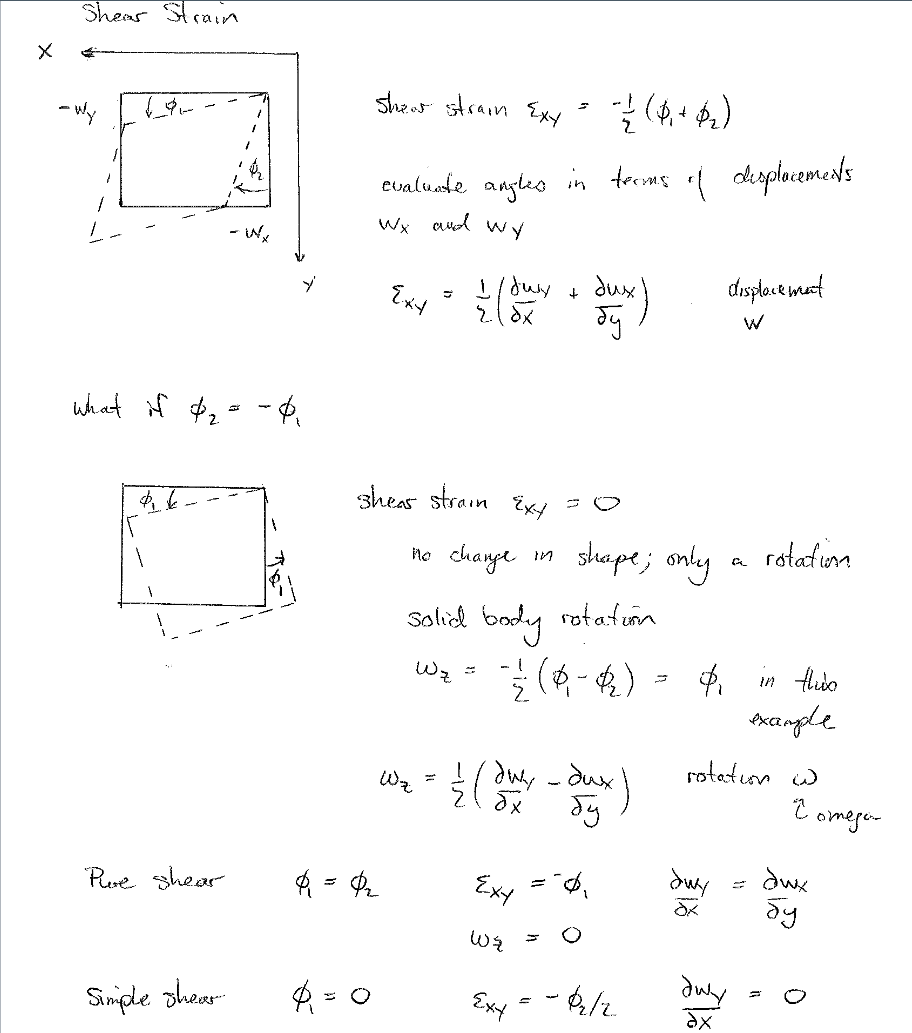 Shear Strain
X
-wy
ϕ1
ϕ2
-wx
y
Shear strain Σxy = -1/2 (ϕ1 + ϕ2)
evaluate angles in terms of displacements
wx and wy
Σxy = 1/2 (∂wy/∂x + ∂wx/∂y) displacement
w
what if ϕ2 = -ϕ1
ϕ1
ϕ1
shear strain Σxy = 0
no change in shape; only a rotation
solid body rotation
ωz = -1/2 (ϕ1 - ϕ2) = ϕ1 in this
example
ωz = 1/2 (∂wy/∂x - ∂wx/∂y) rotation ω
omega
Pure shear ϕ1 = ϕ2 Σxy = -ϕ1 ∂wy/∂x = ∂wx/∂y
ωz = 0
Simple shear ϕ1 = 0 Σxy = -ϕ2/2 ∂wy/∂x = 0